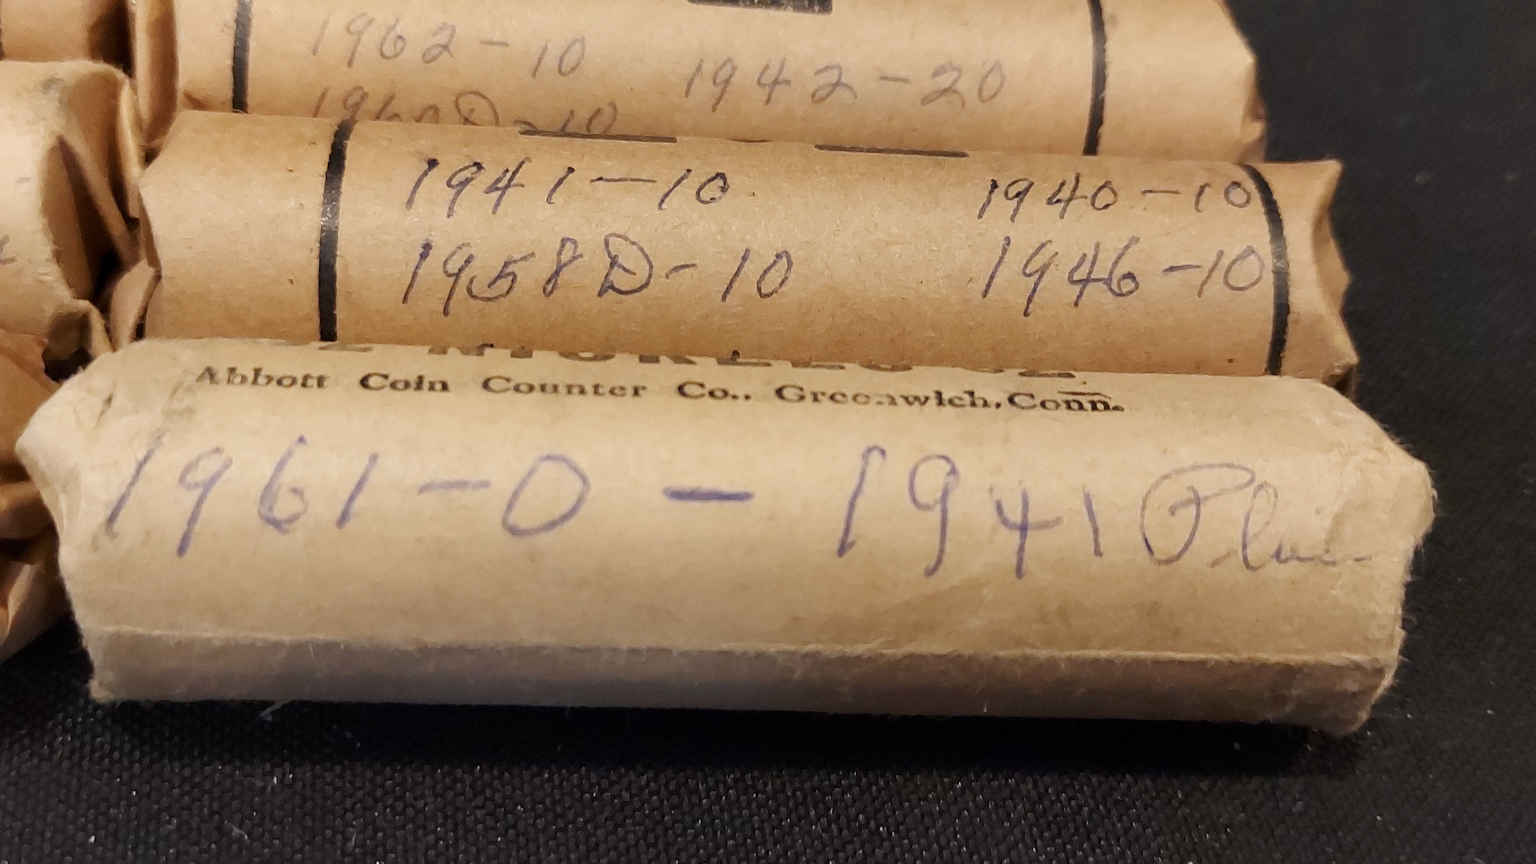 1962-10
1942-20
1960D-10
1941-10
1940-10
1958D-10
1946-10
NICKELS
Abbott Coin Counter Co., Greenwich, Conn.
1961-D - 1941 Plain